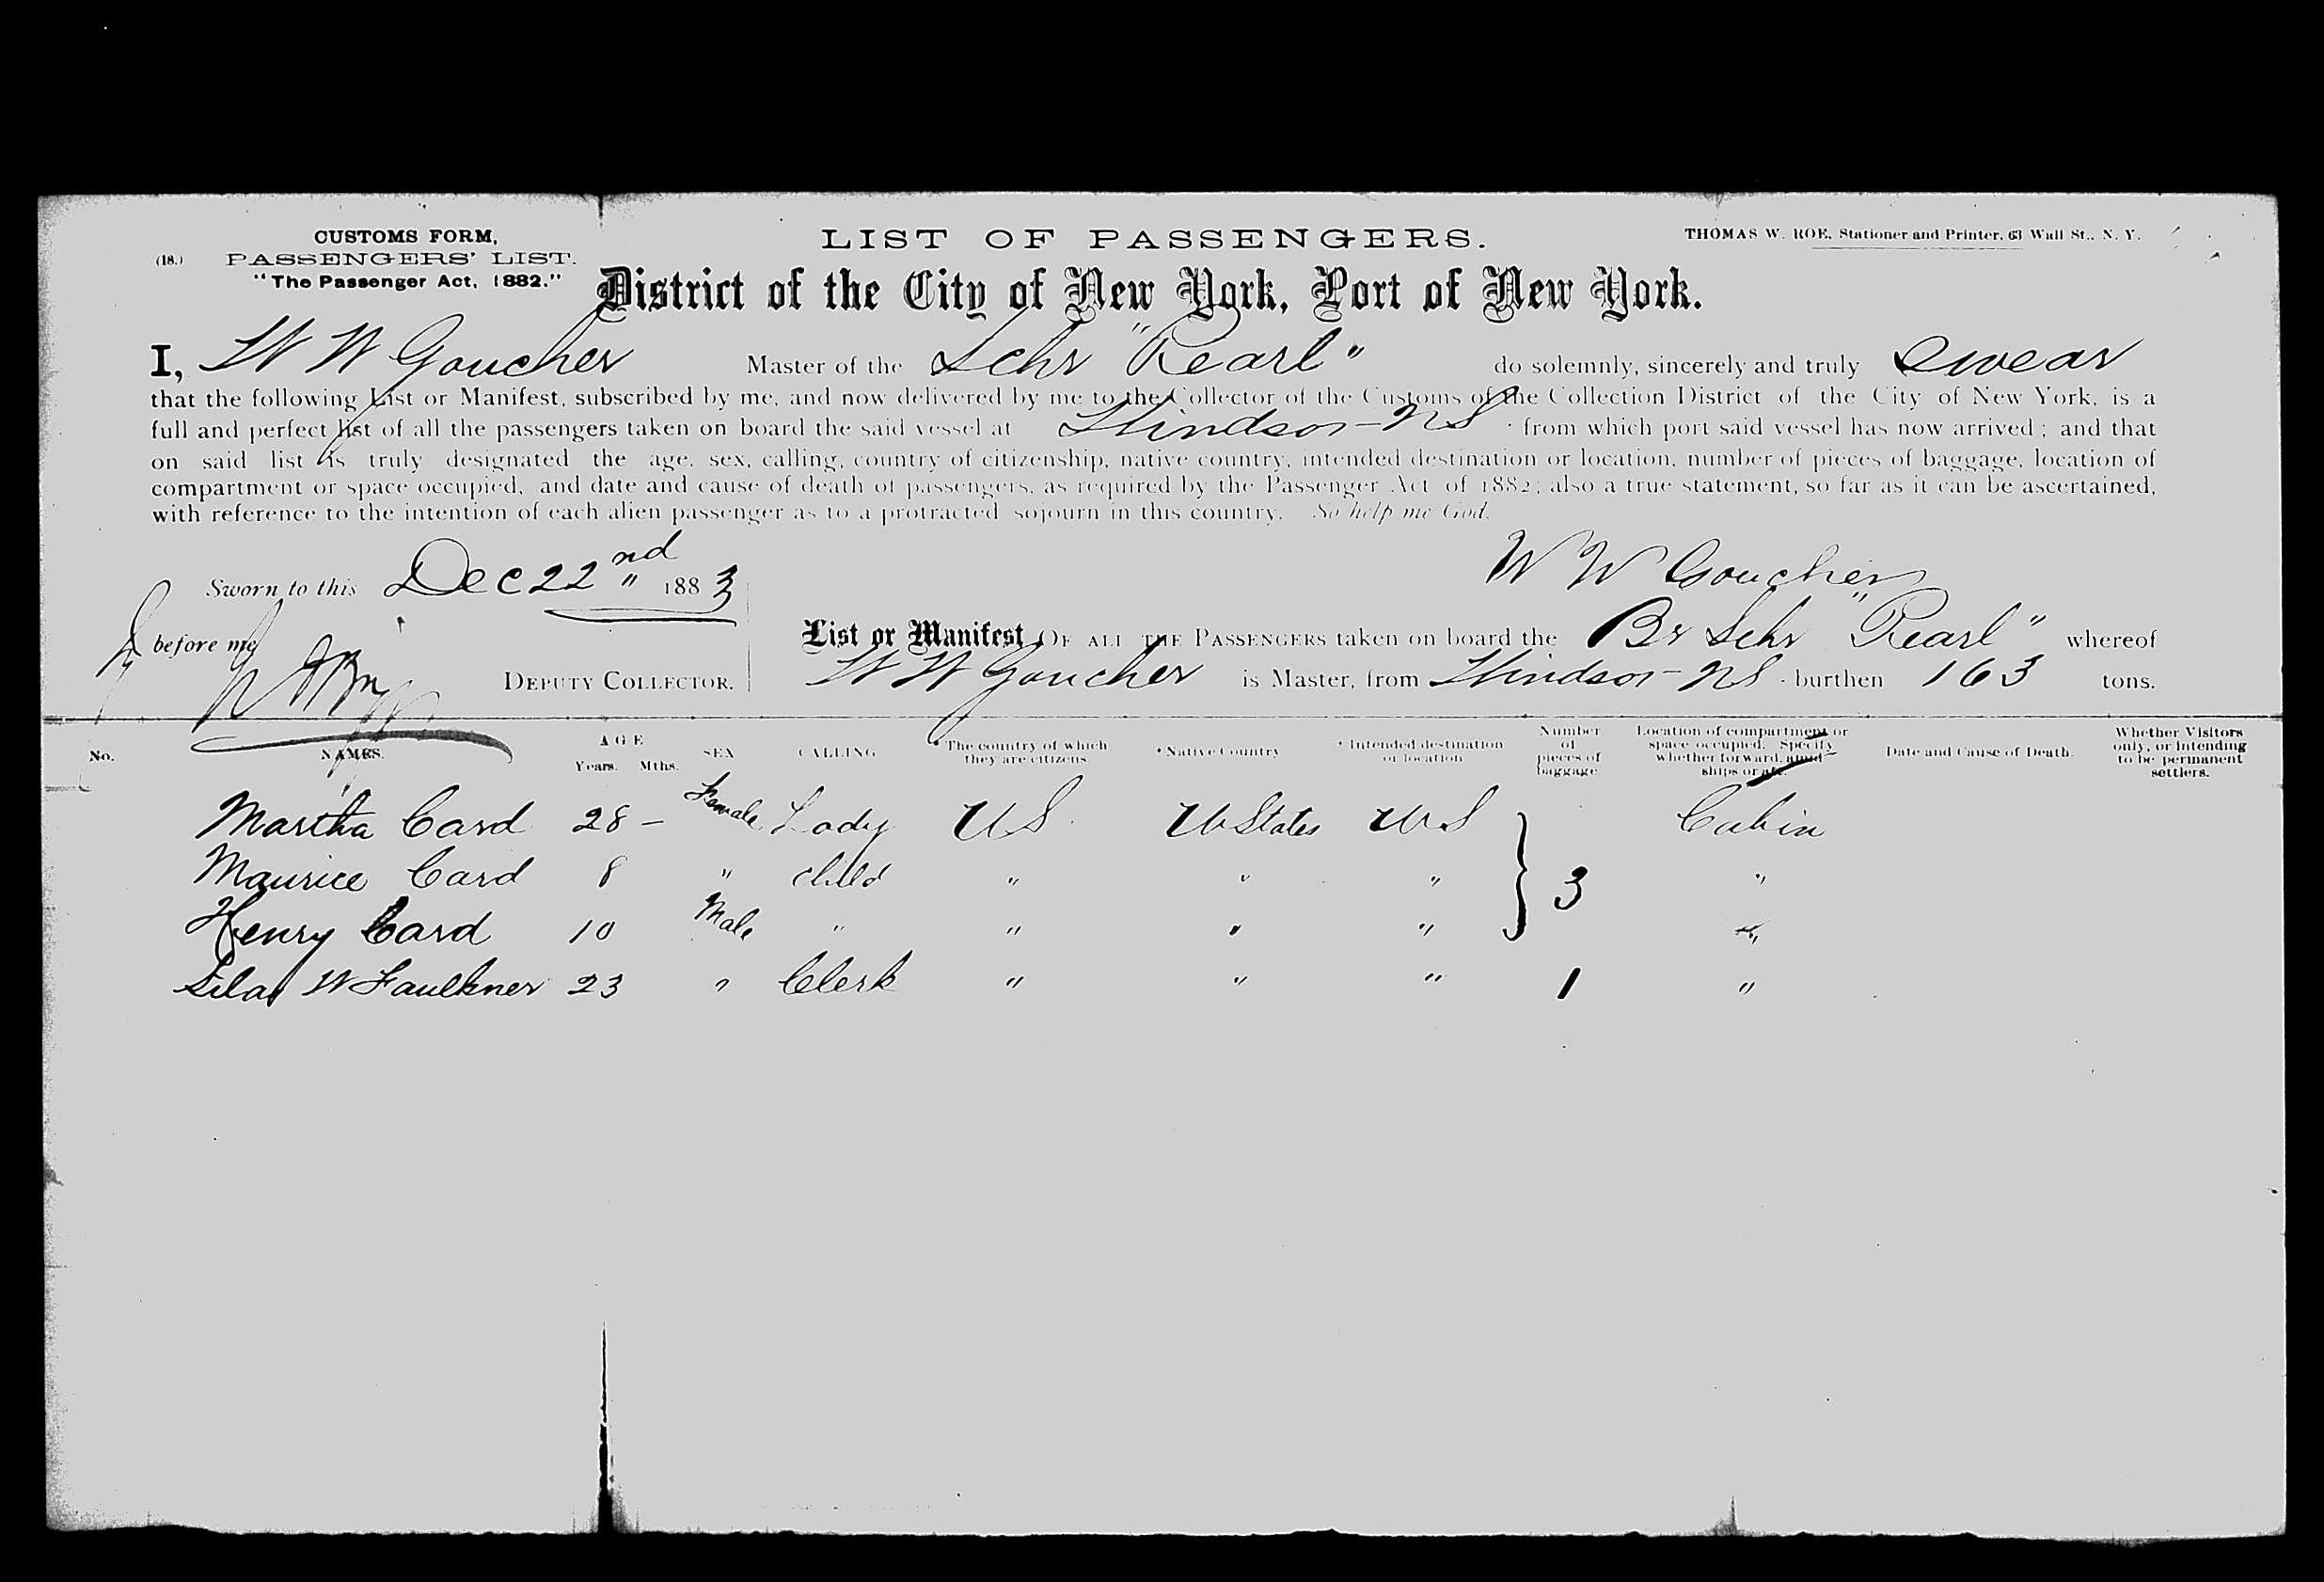 CUSTOMS FORM,
(18.) PASSENGERS' LIST.
"The Passenger Act, 1882."
LIST OF PASSENGERS.
THOMAS W. ROE, Stationer and Printer, 63 Wall St., N. Y.
District of the City of New York, Port of New York.
I, W W Goucher Master of the Schr "Pearl" do solemnly, sincerely and truly swear
that the following List or Manifest, subscribed by me, and now delivered by me to the Collector of the Customs of the Collection District of the City of New York, is a
full and perfect list of all the passengers taken on board the said vessel at Windsor - NS from which port said vessel has now arrived; and that
on said list is truly designated the age, sex, calling, country of citizenship, native country, intended destination or location, number of pieces of baggage, location of
compartment or space occupied, and date and cause of death of passengers, as required by the Passenger Act of 1882; also a true statement, so far as it can be ascertained,
with reference to the intention of each alien passenger as to a protracted sojourn in this country. So help me God.
W W Goucher
Sworn to this Dec 22nd " 1883
before me
DEPUTY COLLECTOR.
List or Manifest OF ALL THE PASSENGERS taken on board the Br Schr "Pearl" whereof
W W Goucher is Master, from Windsor - NS burthen 163 tons.
No. NAMES. AGE Years. Mths. SEX CALLING * The country of which they are citizens * Native Country * Intended destination or location Number of pieces of baggage Location of compartment or space occupied. Specify whether forward, amidships or aft. Date and Cause of Death. Whether Visitors only, or intending to be permanent settlers.
Martha Card 28 - Female Lady US U States U S Cabin
Maurice Card 8 " child " " " } 3 "
Henry Card 10 Male " " " " "
Silas W Faulkner 23 " Clerk " " " 1 "